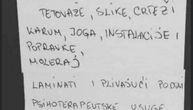 TETOVAŽE, SLIKE, CRTEŽI
KARUM, JOGA, INSTALACIJE I
POPRAVKE,
MOLERAJ
LAMINATI I PLIVAJUĆI PODOVI
PSIHOTERAPEUTSKE USLUGE